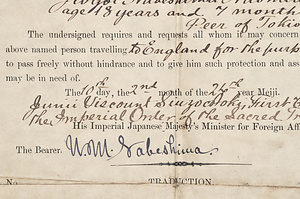 age 48 years and 2 month
Peer of Tokio
The undersigned requires and requests all whom it may concern
above named person traveling to England for the purp
to pass freely without hindrance and to give him such protection and ass
may be in need of.
The 10th day, the 2nd month of the 26th year Meiji.
Junii Viscount First C
the Imperial Order of the Sacred Tr
His Imperial Japanese Majesty's Minister for Foreign Affa
The Bearer. N. Nabeshima.
No. TRADUCTION.